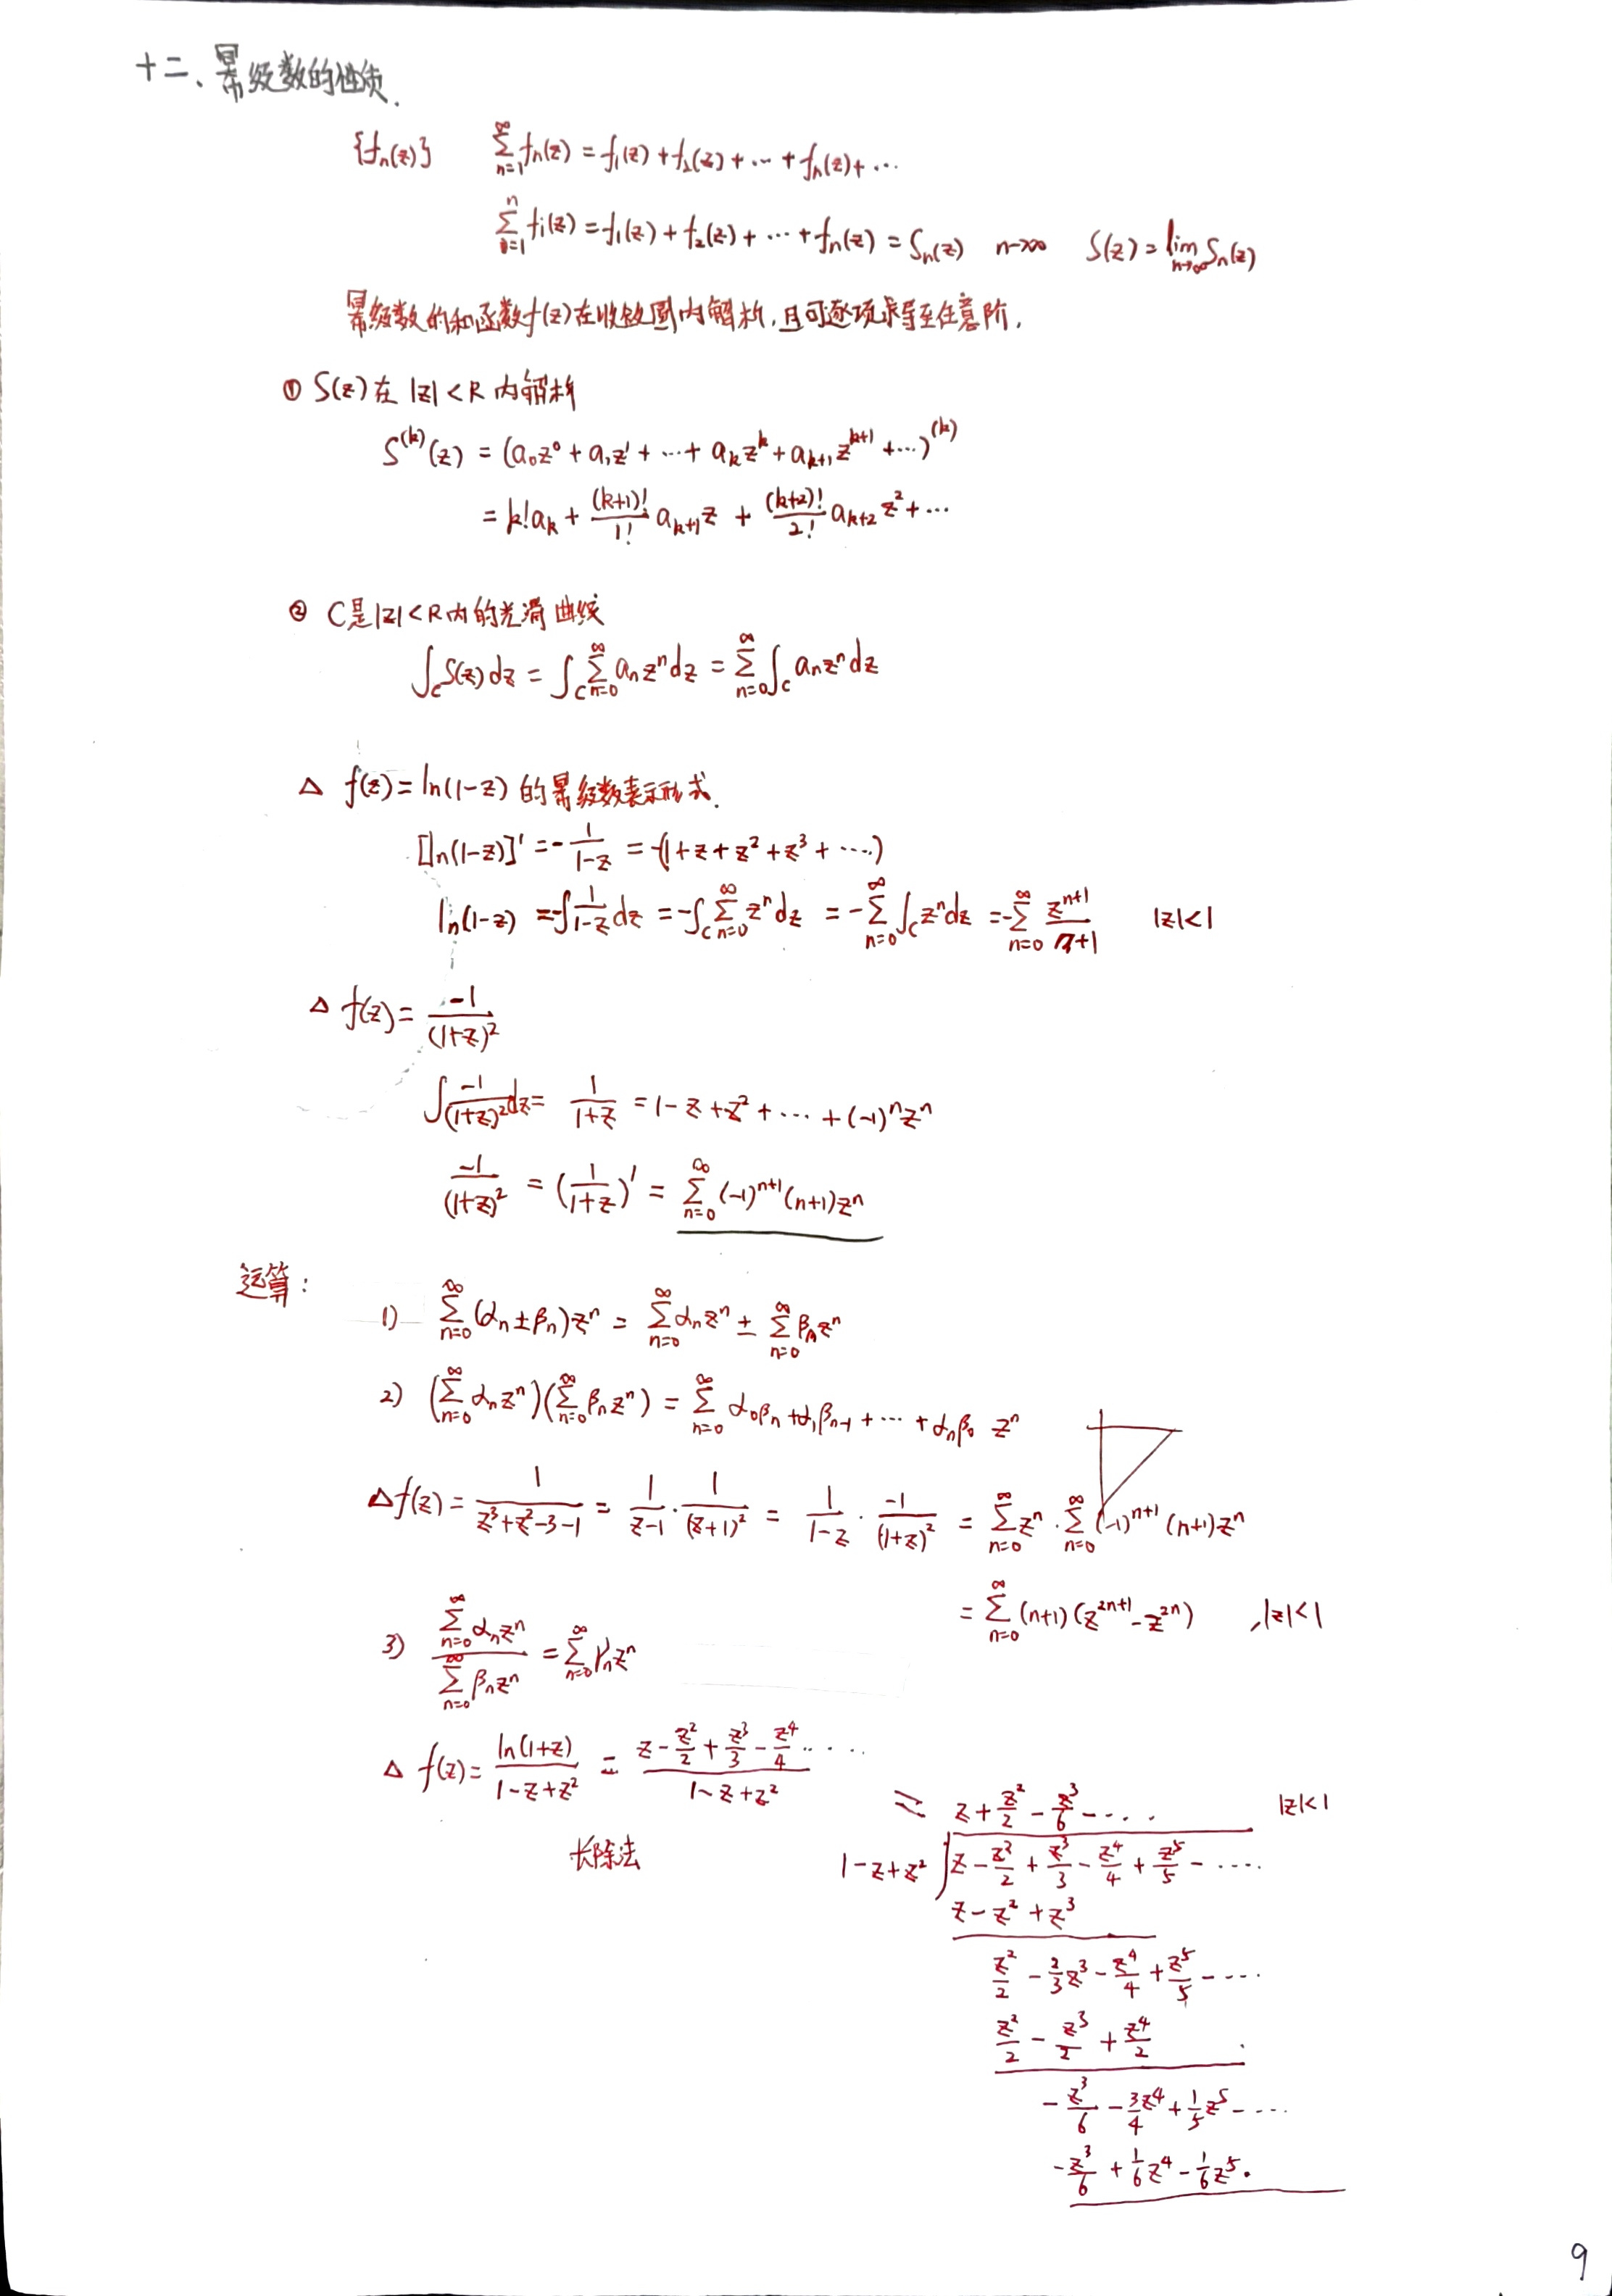 十二、幂级数的性质.
{fₙ(z)}  ∑_{n=1}^{∞} fₙ(z) = f₁(z) + f₂(z) + ⋯ + fₙ(z) + ⋯
∑_{i=1}^{n} fᵢ(z) = f₁(z) + f₂(z) + ⋯ + fₙ(z) = Sₙ(z)  n→∞  S(z) = lim_{n→∞} Sₙ(z)
幂级数的和函数f(z)在收敛圆内解析,且可逐项求导至任意阶.
① S(z) 在 |z| < R 内解析
S^{(k)}(z) = (a₀z⁰ + a₁z¹ + ⋯ + a_k z^k + a_{k+1} z^{k+1} + ⋯)^{(k)}
= k!a_k + (k+1)!/1! a_{k+1} z + (k+2)!/2! a_{k+2} z² + ⋯
② C是|z| < R内的光滑曲线
∫_C S(z)dz = ∫_C ∑_{n=0}^{∞} aₙzⁿdz = ∑_{n=0}^{∞} ∫_C aₙzⁿdz
△ f(z) = ln(1-z) 的幂级数表示形式.
[ln(1-z)]' = -1/(1-z) = -(1 + z + z² + z³ + ⋯)
ln(1-z) = -∫ 1/(1-z) dz = -∫_C ∑_{n=0}^{∞} zⁿdz = -∑_{n=0}^{∞} ∫_C zⁿdz = -∑_{n=0}^{∞} z^{n+1}/(n+1)  |z|<1
△ f(z) = -1/(1+z)²
∫ -1/(1+z)² dz = 1/(1+z) = 1 - z + z² + ⋯ + (-1)ⁿzⁿ
-1/(1+z)² = (1/(1+z))' = ∑_{n=0}^{∞} (-1)^{n+1}(n+1)zⁿ
运算:
1) ∑_{n=0}^{∞} (αₙ±βₙ)zⁿ = ∑_{n=0}^{∞} αₙzⁿ ± ∑_{n=0}^{∞} βₙzⁿ
2) (∑_{n=0}^{∞} αₙzⁿ)(∑_{n=0}^{∞} βₙzⁿ) = ∑_{n=0}^{∞} α₀βₙ + α₁β_{n-1} + ⋯ + αₙβ₀ zⁿ
△ f(z) = 1/(z³+z²-3-1) = 1/(z-1) · 1/(z+1)² = 1/(1-z) · -1/(1+z)² = ∑_{n=0}^{∞} zⁿ · ∑_{n=0}^{∞} (-1)^{n+1}(n+1)zⁿ
= ∑_{n=0}^{∞} (n+1)(z^{2n+1} - z^{2n})  , |z|<1
3) (∑_{n=0}^{∞} αₙzⁿ)/(∑_{n=0}^{∞} βₙzⁿ) = ∑_{n=0}^{∞} γₙzⁿ
△ f(z) = ln(1+z)/(1-z+z²) = (z - z²/2 + z³/3 - z⁴/4 ⋯)/(1-z+z²)
长除法
= z + z²/2 - z³/6 - ⋯  |z|<1
1-z+z² ) z - z²/2 + z³/3 - z⁴/4 + z⁵/5 - ⋯
z - z² + z³
z²/2 - 2/3 z³ - z⁴/4 + z⁵/5 - ⋯
z²/2 - z³/2 + z⁴/2
- z³/6 - 3/4 z⁴ + 1/5 z⁵ - ⋯
- z³/6 + 1/6 z⁴ - 1/6 z⁵.
9